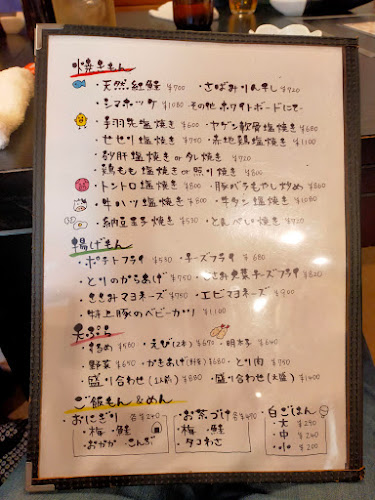 焼きもん
・天然紅鮭 ¥700 ・さばみりん干し ¥720
・シマホッケ ¥1080 その他ホワイトボードにて
・手羽先塩焼き ¥600 ・ヤゲン軟骨塩焼き ¥680
・せせり塩焼き ¥750 ・赤地鶏塩焼き ¥1100
・砂肝塩焼き or タレ焼き ¥720
・鶏もも塩焼き or 照り焼き ¥800
・トントロ塩焼き ¥800 ・豚バラもやし炒め ¥860
・牛ハツ塩焼き ¥800 ・牛タン塩焼き ¥1080
・納豆玉子焼き ¥530 ・とんぺい焼き ¥730
揚げもん
・ポテトフライ ¥530 ・チーズフライ ¥680
・とりのからあげ ¥750 ・ささみ チーズフライ ¥820
・ささみマヨネーズ ¥750 ・エビマヨネーズ ¥900
・特上豚のベビーカツ ¥1,100
天ぷら
・ ¥580 ・えび(2本) ¥670 ・明太子 ¥640
・野菜 ¥650 ・かきあげ ¥680 ・とり肉 ¥750
・盛り合わせ(1人前) ¥880 ・盛り合わせ(大盛) ¥1400
ご飯もん&めん
・おにぎり 各¥240
・梅 ・鮭
・おかか ・こんぶ
・お茶づけ 各¥490
・梅 ・鮭
・タコわさ
・白ごはん
・大 ¥290
・中 ¥240
・小 ¥200